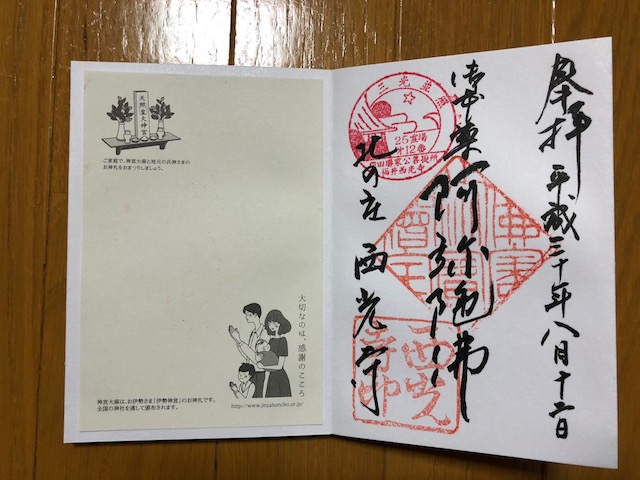 奉拝 平成三十年八月十二日
阿弥陀佛
北の庄 西光寺
25霊場
第12番
柴田勝家公菩提所
福井西光寺
西光寺印
天照皇大神宮
ご家庭で、神宮大麻と地元の氏神さまの
お神札をおまつりしましょう。
大切なのは、感謝のこころ
http://www.jinjahoncho.or.jp/
神宮大麻は、お伊勢さま「伊勢神宮」のお神札です。
全国の神社を通して頒布されます。